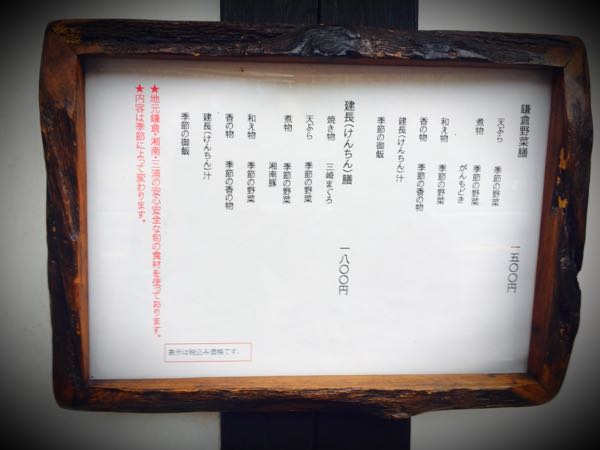 鎌倉野菜膳 一五〇〇円
天ぷら 季節の野菜
煮物 がんもどき
季節の野菜
和え物 季節の野菜
香の物 季節の香の物
建長(けんちん)汁
季節の御飯
建長(けんちん)膳 一八〇〇円
焼き物 三崎まぐろ
天ぷら 季節の野菜
煮物 季節の野菜
湘南豚
和え物 季節の野菜
香の物 季節の香の物
建長(けんちん)汁
季節の御飯
★地元鎌倉・湘南・三浦の安心安全な旬の食材を使っております。
★内容は季節によって変わります。
表示は税込み価格です。